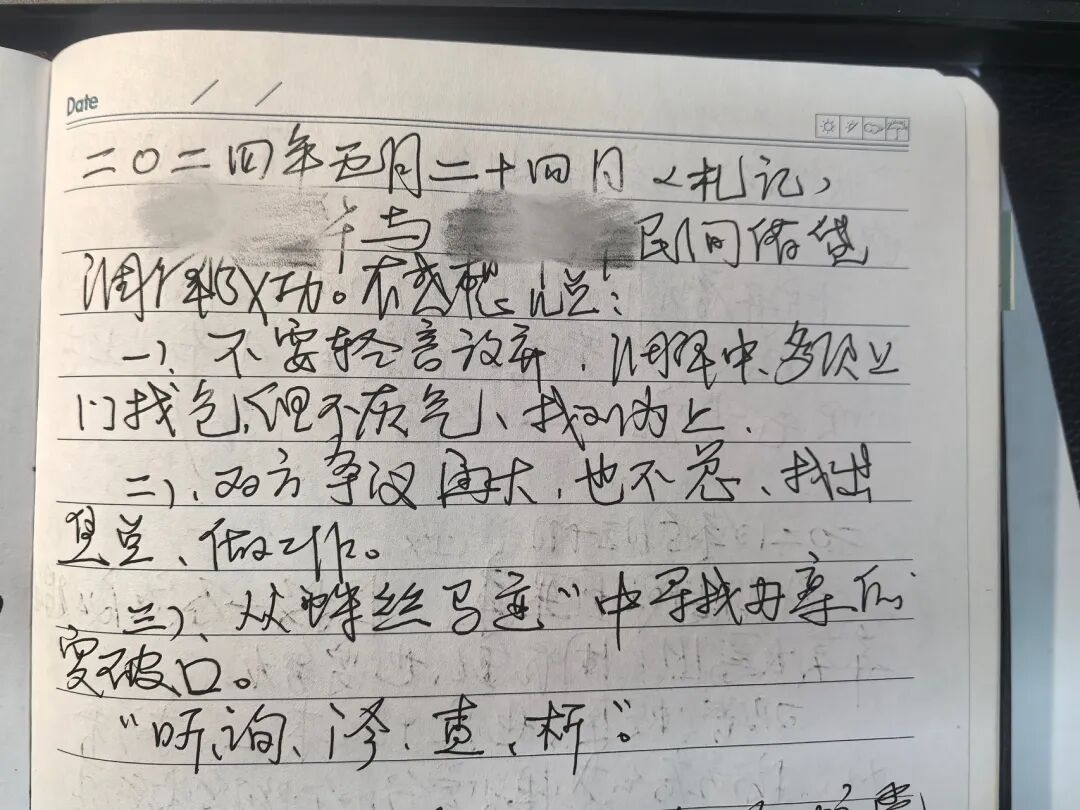 Date / /
二〇二四年五月二十四日(札记)
与 民间借贷
调解成功。有感想几点:
一)、不要轻言放弃,调解中、多次上
门找包,但不灰气、找
二)、双方争议再大,也不怨、找出
焦点、做工作。
三)、从蛛丝马迹"中寻找办案的
突破口。
"听、询、 、查、析"。